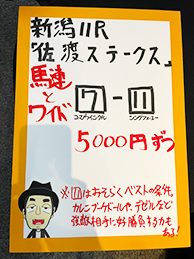 新潟11R
「佐渡ステークス」
馬連
と
ワイド
7-11
コマノインクル シングフォーユー
5000円ずつ
※11はおそらくベストの条件。
カレンブーケドールや、デゼルなど
強敵相手に好勝負するかも
ある!